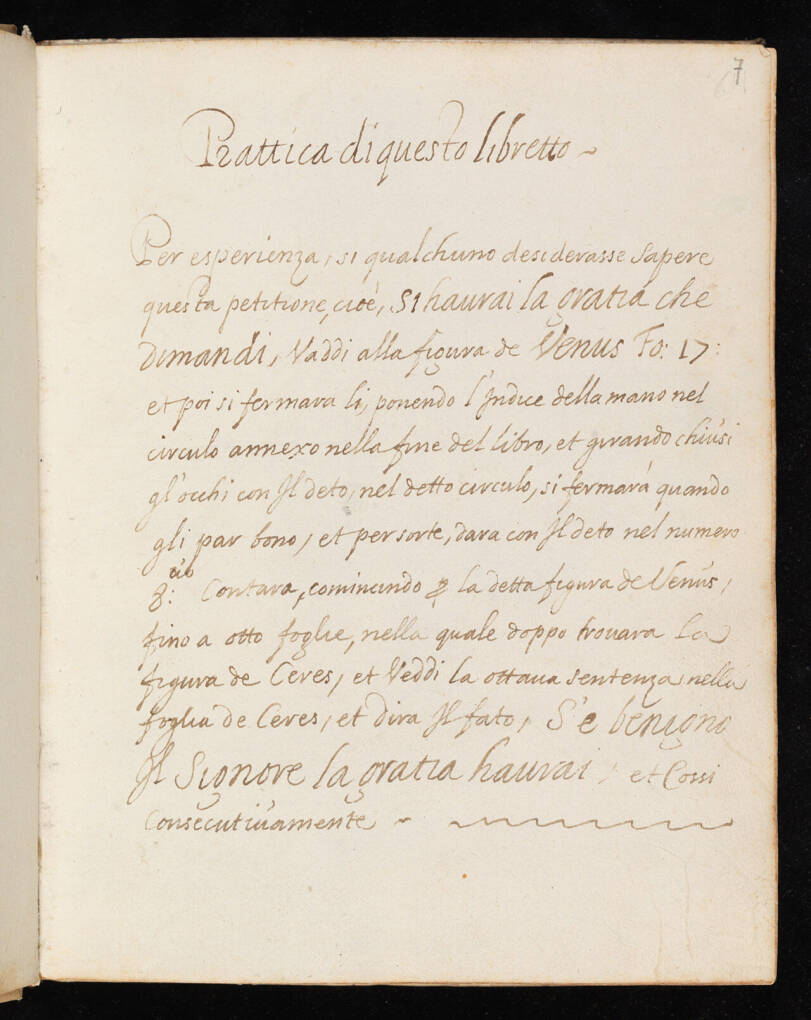 7
Prattica di questo libretto ~
Per esperienza, si qualchuno desiderasse sapere
questa petitione, cioé, SI haurai la gratia che
dimandi, Vaddi alla figura de Venus Fo: 17:
et poi si fermara li, ponendo l'Indice della mano nel
circulo annexo nella fine del libro, et girando chiusi
gl'occhi con Il deto, nel detto circulo, si fermará quando
gli par bono, et per sorte, dara con Il deto nel numero
8: Contara, comincindo ꝑ la detta figura de Venus,
fino a otto foglie, nella quale doppo trouara La
figura de Ceres, et Veddi la ottaua sentenza nella
foglia de Ceres, et dira Il fato, S'e benigno
Il Signore la gratia haurai, et Cossi
Consecutiuamente ~